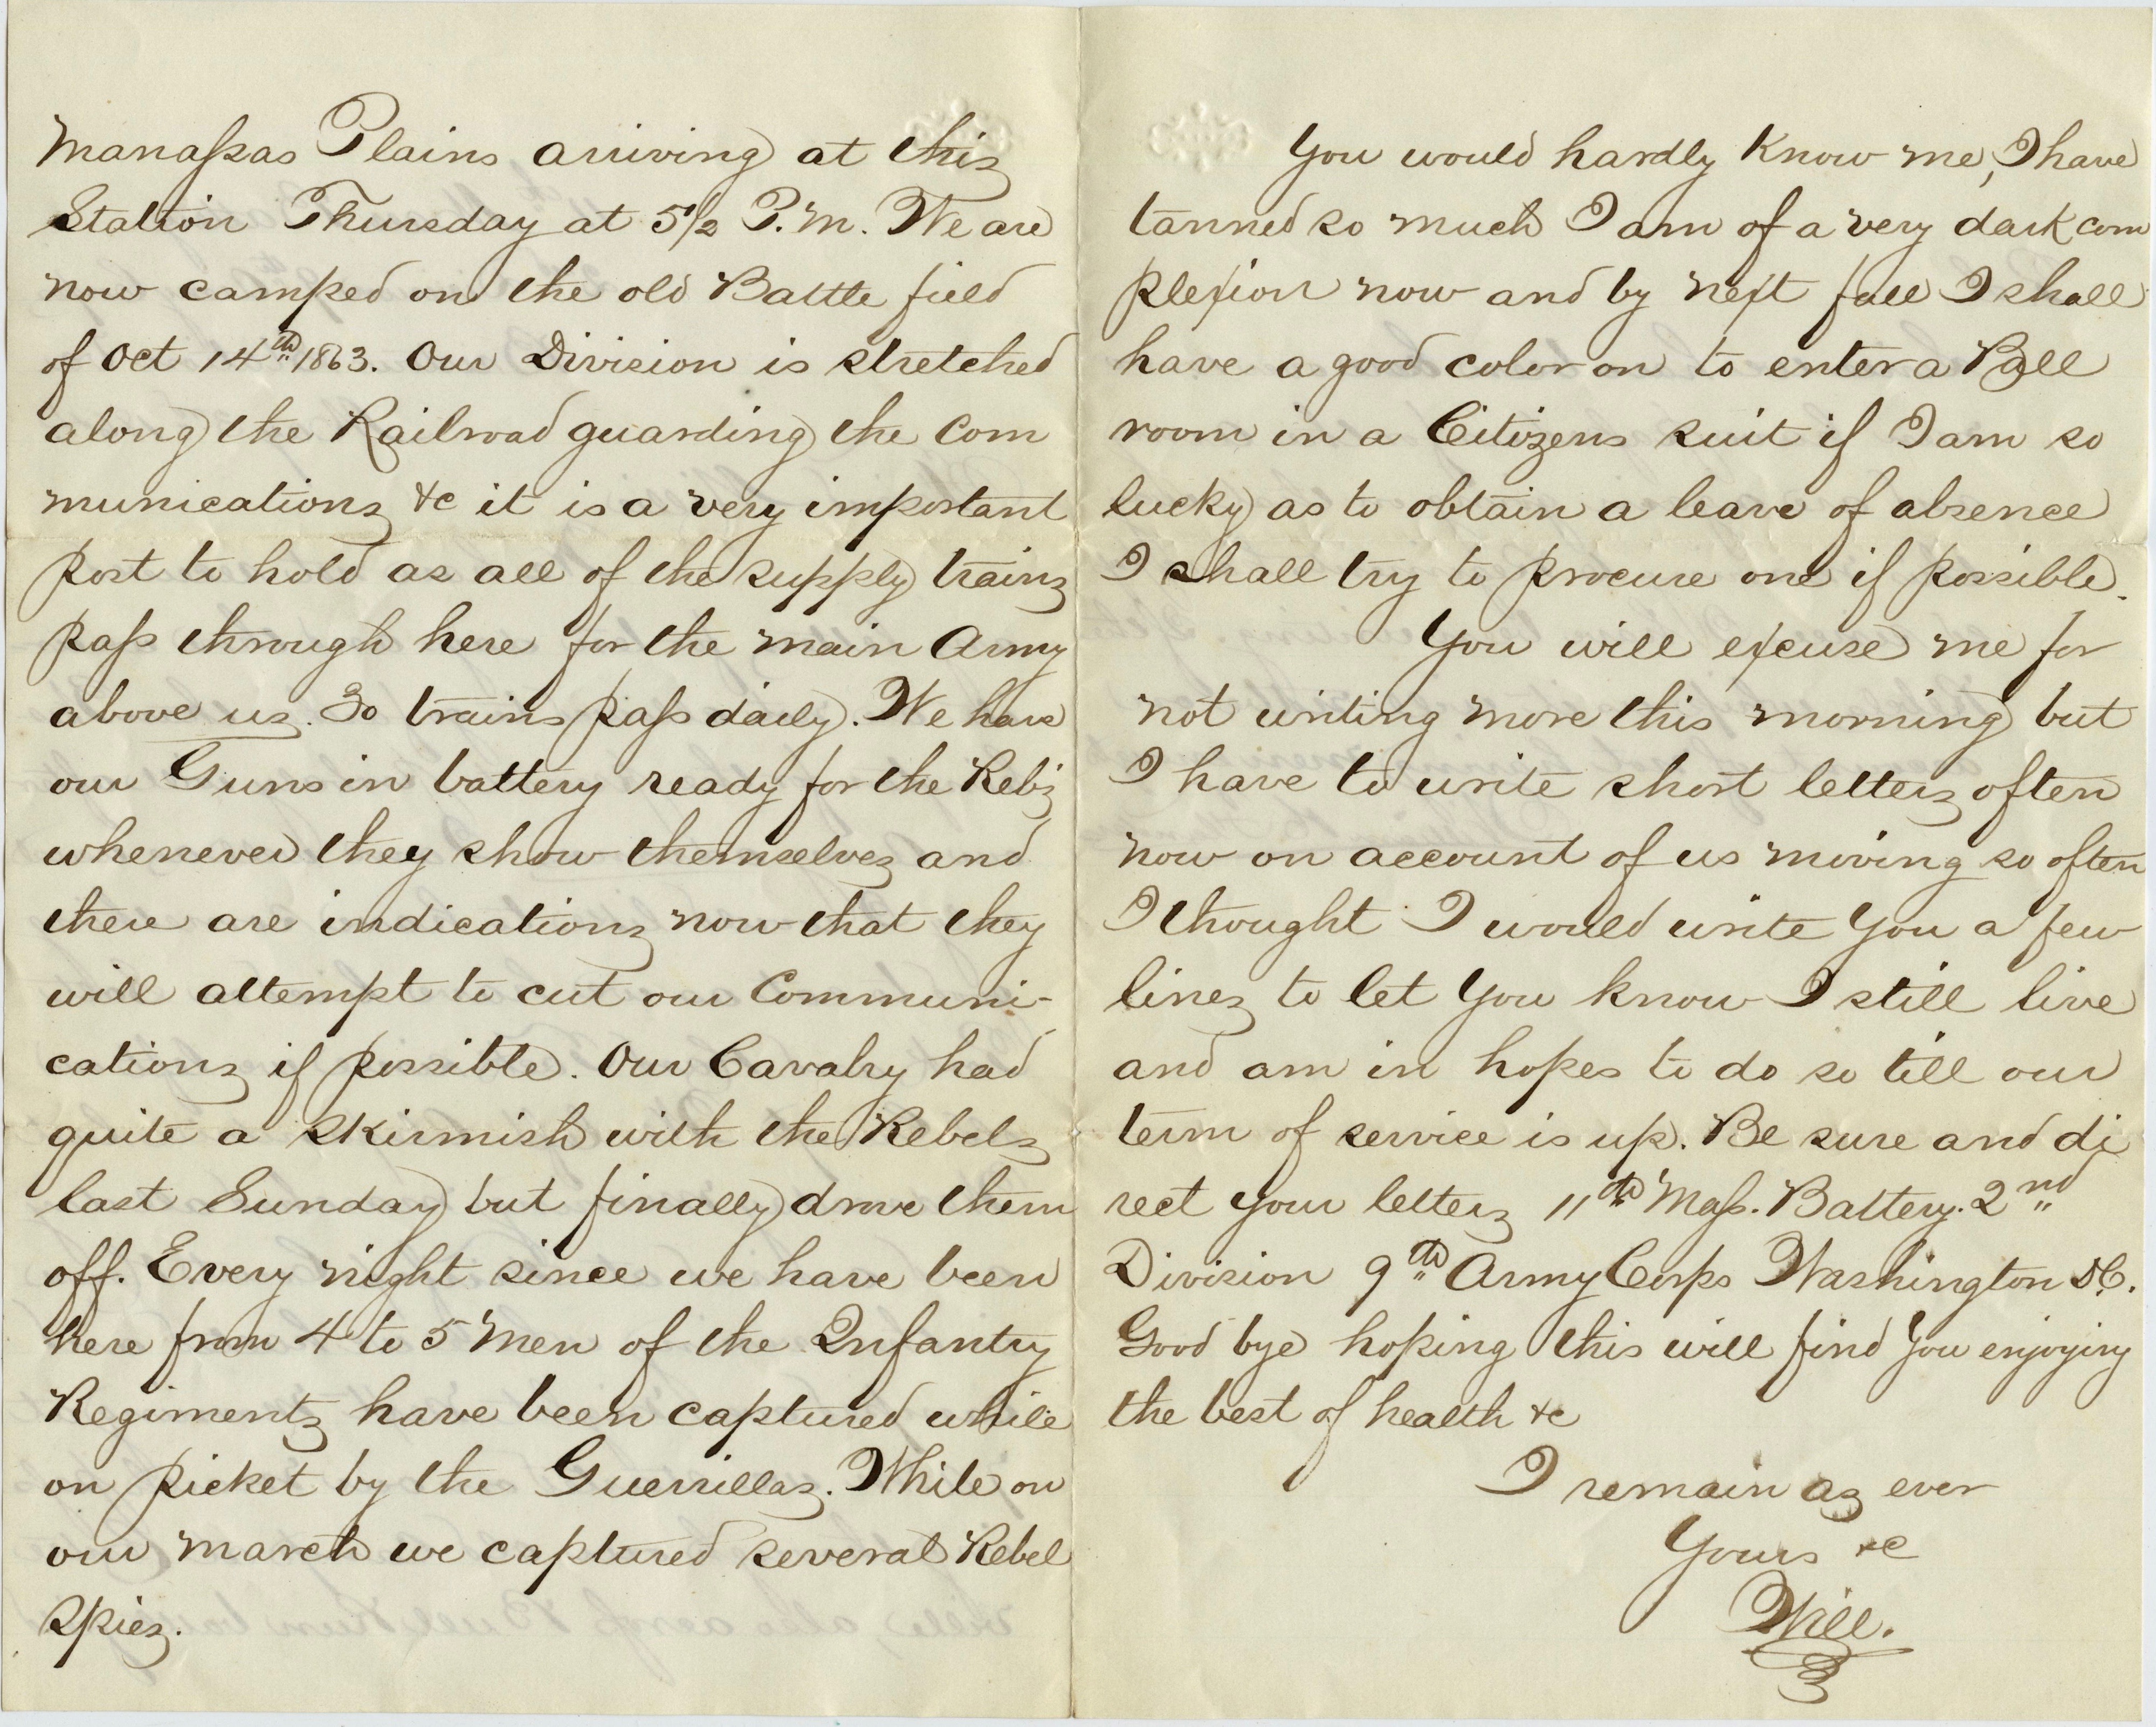 Manassas Plains arriving at this
Station Thursday at 5 1/2 P.M. We are
now camped on the old Battle field
of Oct 14th 1863. Our Division is stretched
along the Railroad guarding the Com
munications &c it is a very important
post to hold as all of the supply trains
pass through here for the main Army
above us. 30 trains pass daily. We have
our Guns in battery ready for the Reb's
whenever they show themselves and
there are indications now that they
will attempt to cut our Communi-
cations if possible. Our Cavalry had
quite a skirmish with the Rebels
last Sunday but finally drove them
off. Every night since we have been
here from 4 to 5 Men of the Infantry
Regiments have been captured while
on picket by the Guerrillas. While on
our march we captured several Rebel
Spies.
You would hardly Know me, I have
tanned so much I am of a very dark com
plexion now and by next fall I shall
have a good color on to enter a Ball
room in a Citizens suit if I am so
lucky as to obtain a leave of absence
I shall try to procure one if possible.
You will excuse me for
not writing more this morning but
I have to write short letters often
now on account of us moving so often
I thought I would write You a few
lines to let You know I still live
and am in hopes to do so till our
term of service is up. Be sure and di
rect your letters 11th Mass. Battery. 2nd
Division 9th Army Corps Washington D.C.
Good bye hoping this will find You enjoying
the best of health &c
I remain as ever
Yours &c
Will.